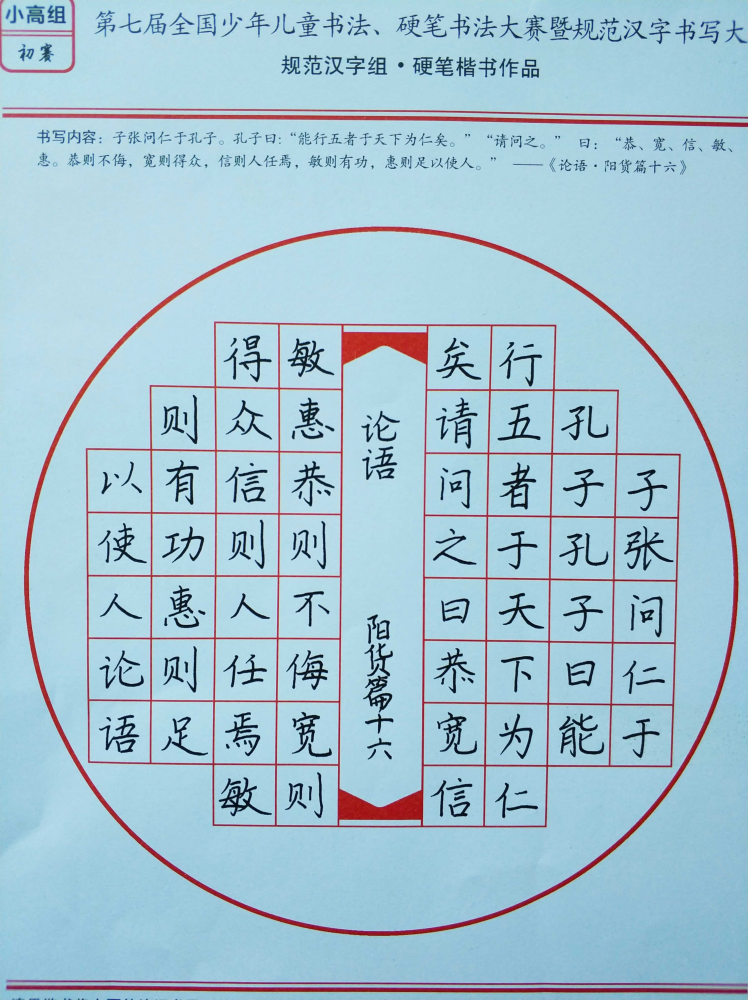 小高组
初赛
第七届全国少年儿童书法、硬笔书法大赛暨规范汉字书写大
规范汉字组·硬笔楷书作品
书写内容：子张问仁于孔子。孔子曰：“能行五者于天下为仁矣。”“请问之。”曰：“恭、宽、信、敏、
惠。恭则不侮，宽则得众，信则人任焉，敏则有功，惠则足以使人。”——《论语·阳货篇十六》
子张问仁于
孔子孔子曰能
行五者于天下为仁
矣请问之曰恭宽信
论语 阳货篇十六
敏惠恭则不侮宽则
得众信则人任焉敏
则有功惠则足
以使人论语